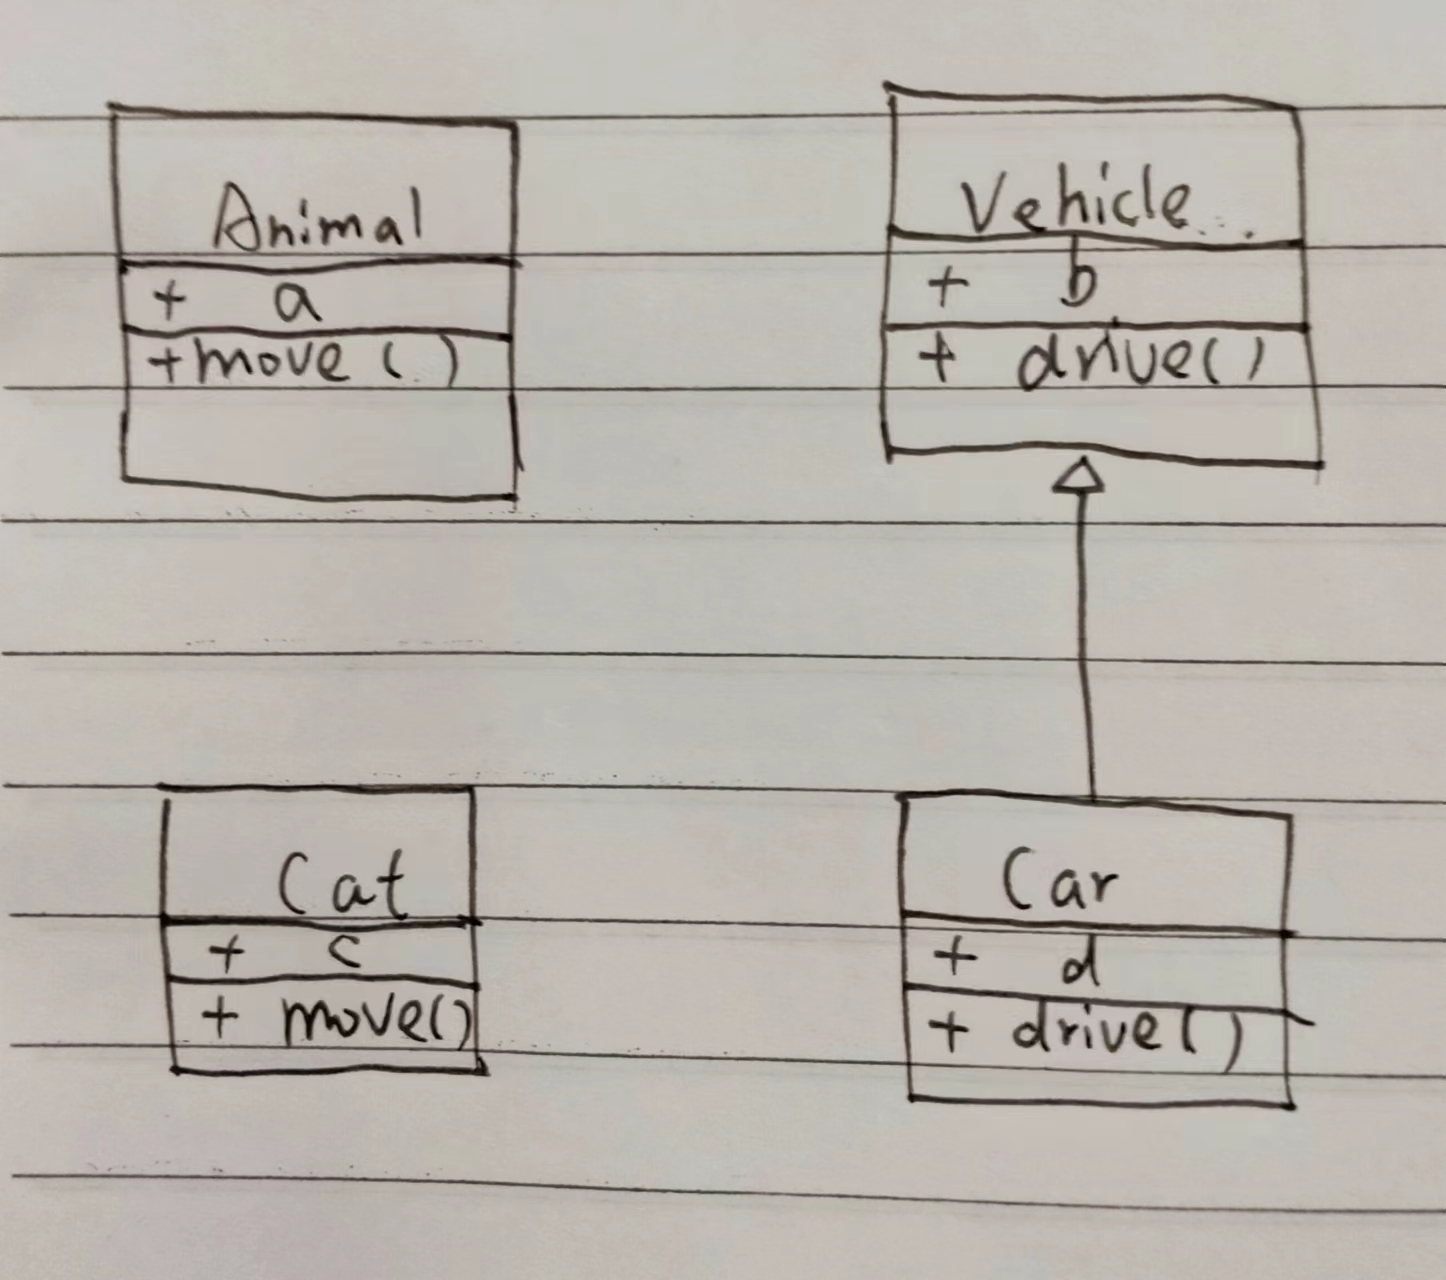 Animal
+ a
+move ( )
Vehicle
+ b
+ drive()
Cat
+ c
+ move()
Car
+ d
+ drive()